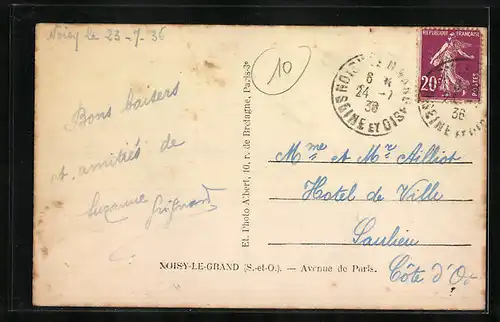 Noisy le 23-7-36
10
Bons baisers
et amitiés de
Suzanne
Et. Photo Albert, 10, r. de Bretagne, Paris-3e
REPUBLIQUE FRANÇAISE
20c
POSTES
6 H
24 -7
36
SEINE ET OISE
36
Mme et Mr Ailliot
Hotel de Ville
Saulieu
Côte d'Or
NOISY-LE-GRAND (S.-et-O.). — Avenue de Paris.